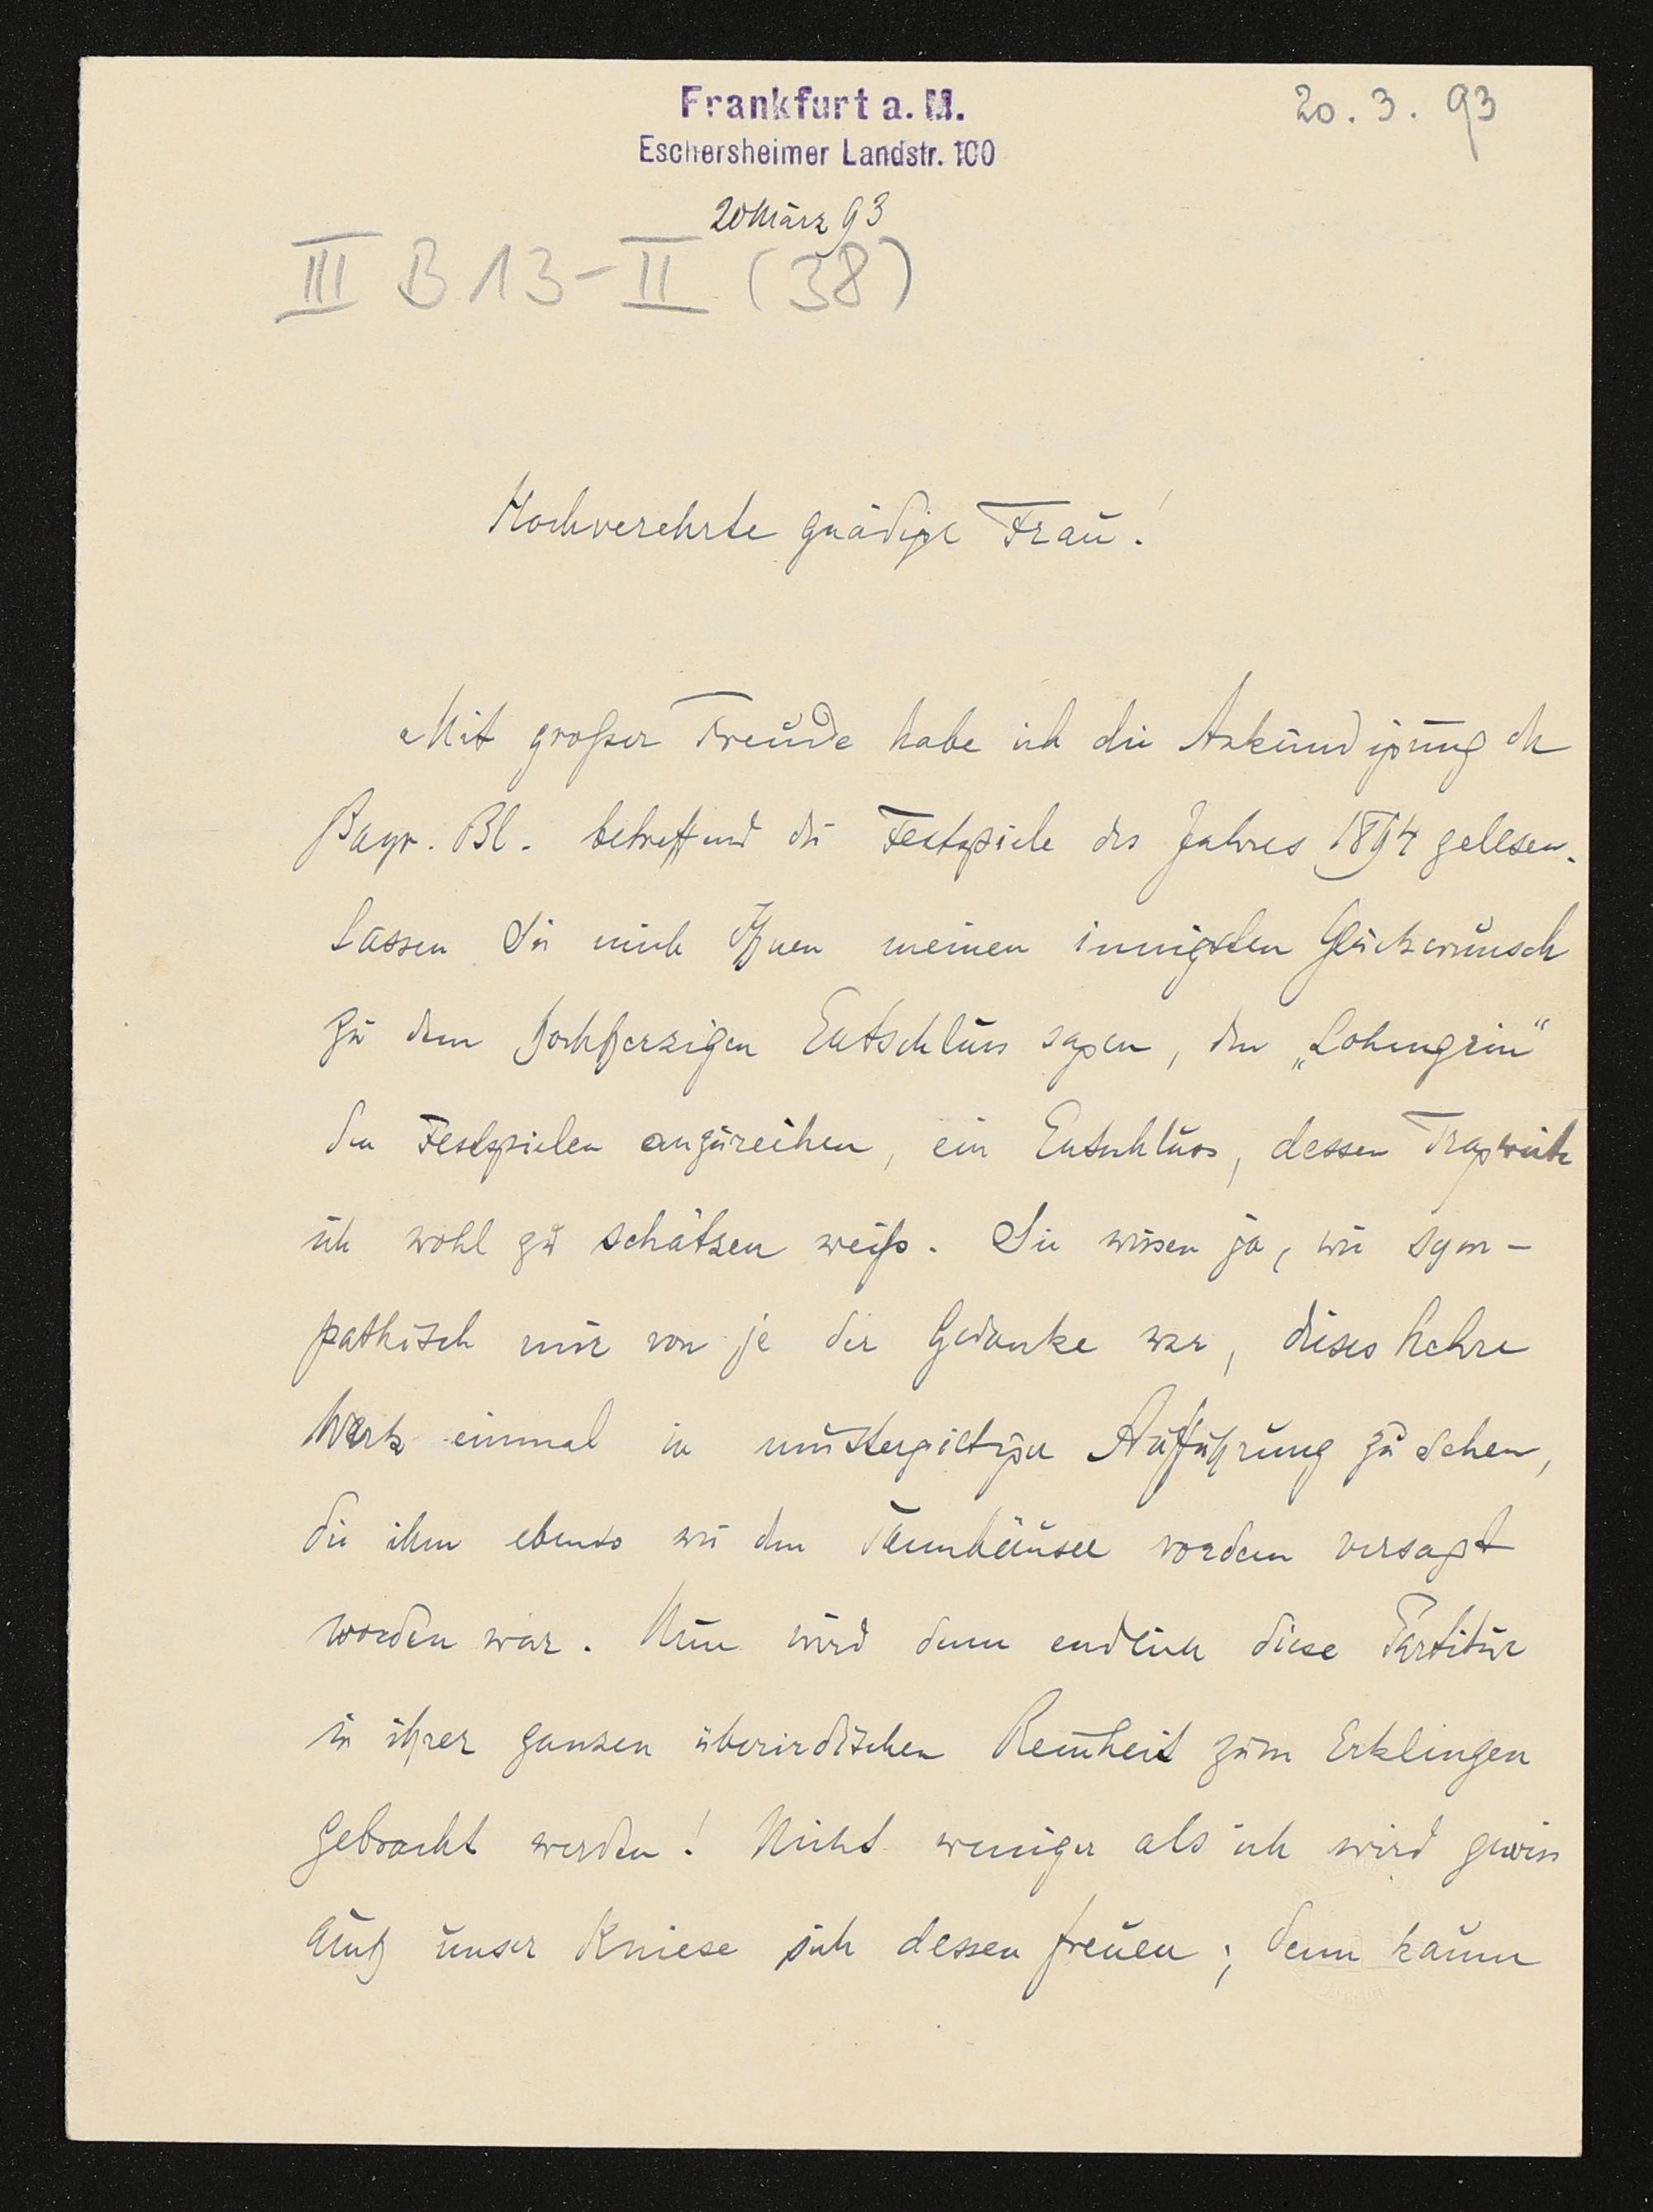 Frankfurt a. M.
20. 3. 93
Eschersheimer Landstr. 100
20 März 93
III B 13-II (38)
Hochverehrte gnädige Frau!
Mit großer Freude habe ich die Ankündigung der
Bayr. Bl. betreffend die Festspiele des Jahres 1894 gelesen.
Lassen Sie mich Ihnen meinen innigsten Glückwunsch
zu dem hochherzigen Entschluss sagen, den „Lohengrin“
den Festspielen anzureihen, ein Entschluss, dessen Tragweite
ich wohl zu schätzen weiß. Sie wissen ja, wie sym-
pathisch mir von je der Gedanke war, dieses hehre
Werk einmal in mustergiltiger Aufführung zu sehen,
die ihm ebenso wie dem Tannhäuser vordem versagt
worden war. Nun wird denn endlich diese Partitur
in ihrer ganzen überirdischen Reinheit zum Erklingen
gebracht werden! Nicht weniger als ich wird gewiss
auch unser Kniese sich dessen freuen; denn kaum